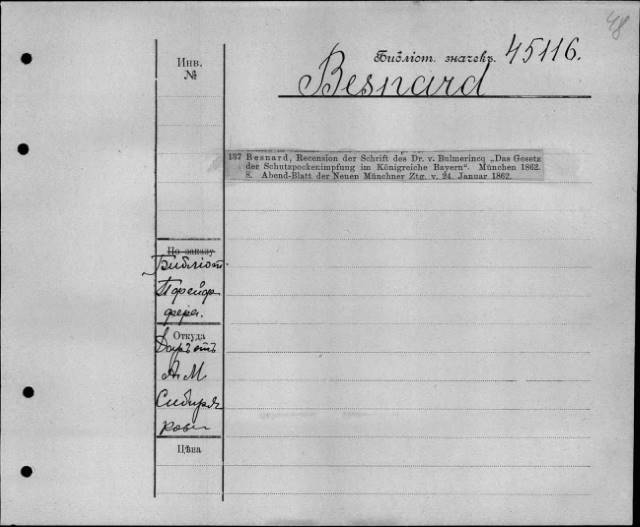 48
Инв.
№
Библіот. значекъ. 45116.
Besnard
137 Besnard, Recension der Schrift des Dr. v. Bulmerincq „Das Gesetz
der Schutzpockenimpfung im Königreiche Bayern“. München 1862.
8. Abend-Blatt der Neuen Münchner Ztg. v. 24. Januar 1862.
По заказу
Библіот.
Пфейф
фера.
Откуда
Даръ отъ
А. М.
Сибиря
кова
Цѣна